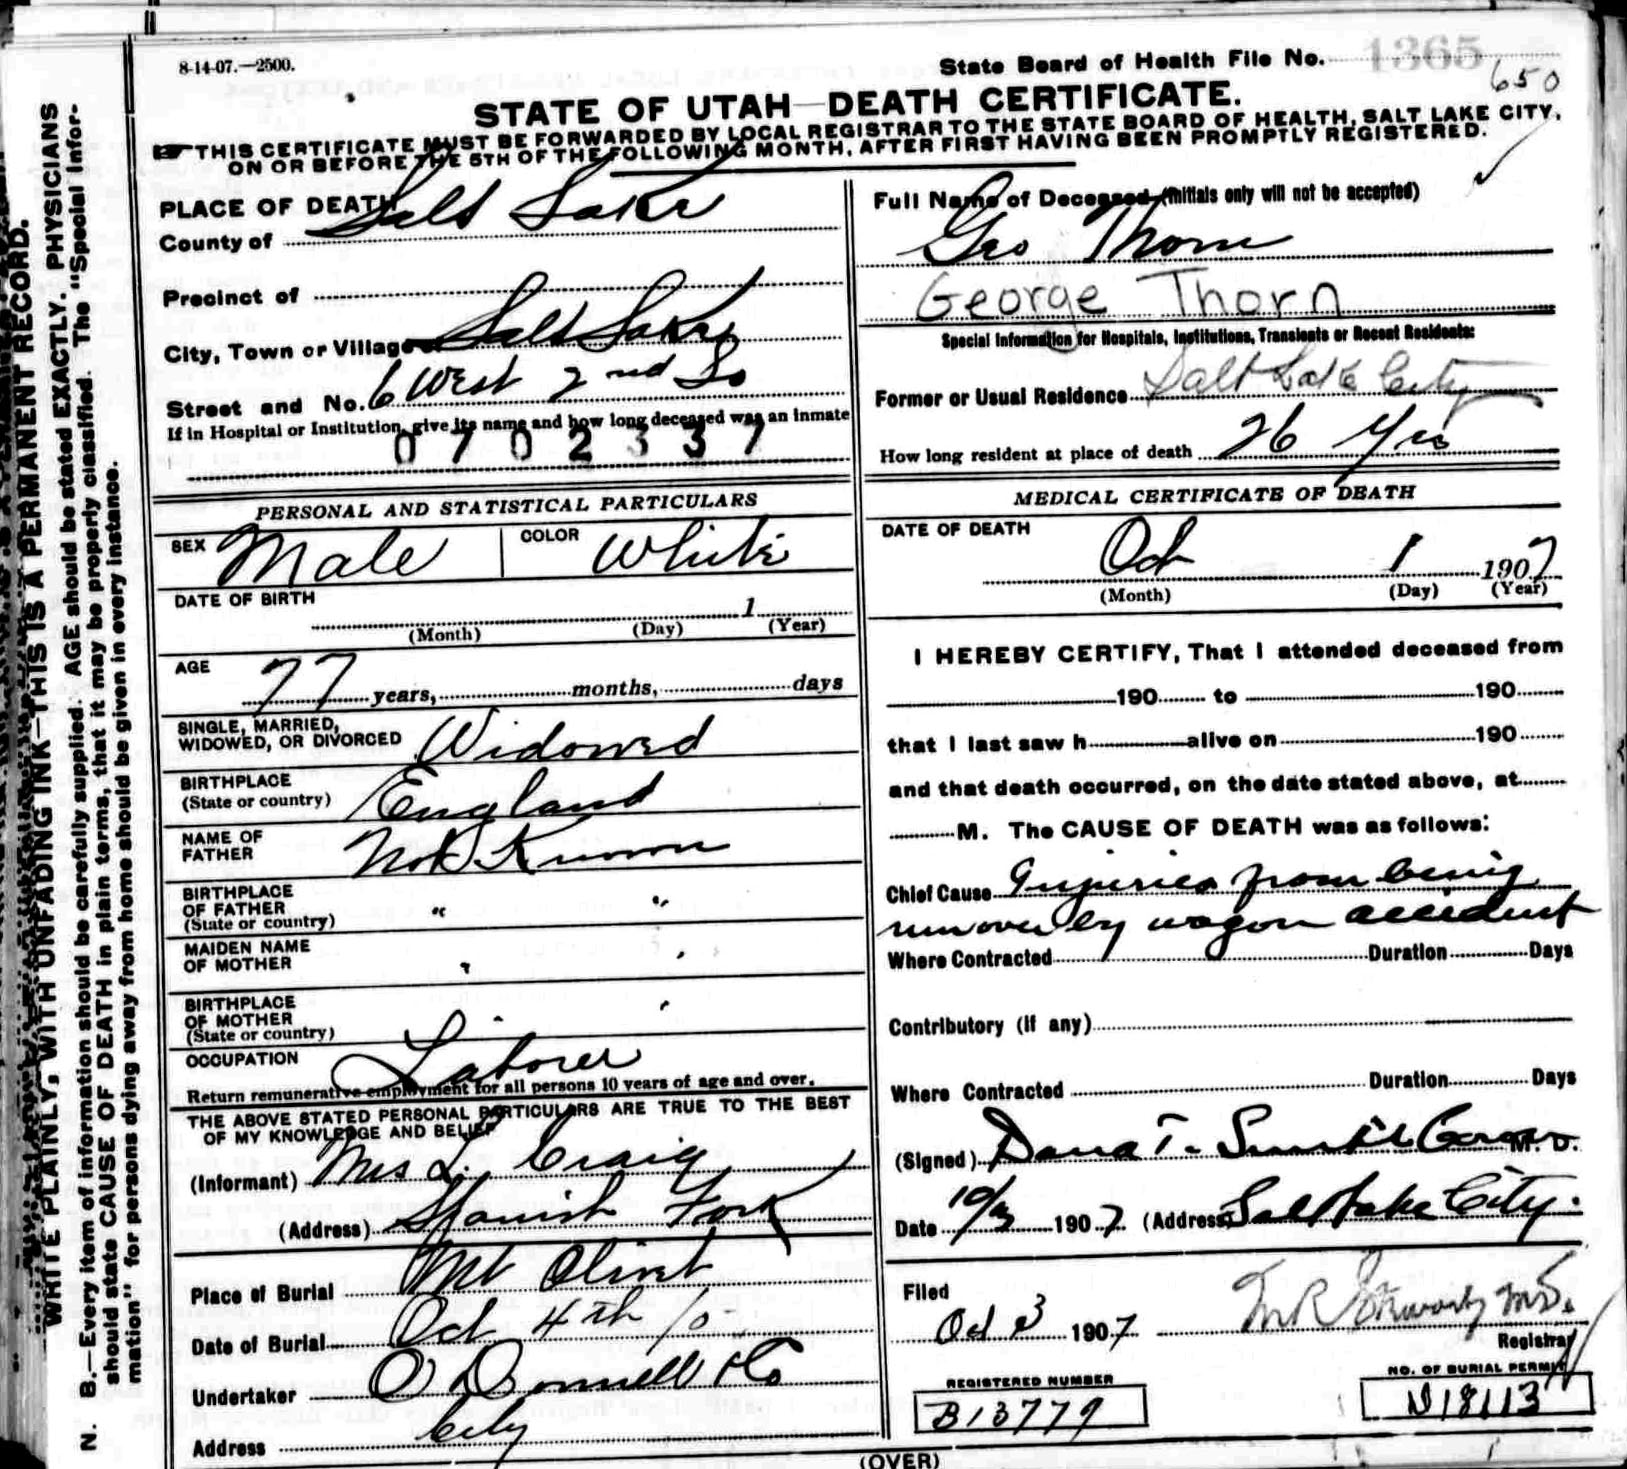 8-14-07.—2500.
State Board of Health File No. 1365
650
STATE OF UTAH—DEATH CERTIFICATE.
THIS CERTIFICATE MUST BE FORWARDED BY LOCAL REGISTRAR TO THE STATE BOARD OF HEALTH, SALT LAKE CITY,
ON OR BEFORE THE 5TH OF THE FOLLOWING MONTH, AFTER FIRST HAVING BEEN PROMPTLY REGISTERED.
PLACE OF DEATH
County of Salt Lake
Precinct of
City, Town or Village of Salt Lake
Street and No. 6 West 2nd So
If in Hospital or Institution, give its name and how long deceased was an inmate
0702337
Full Name of Deceased (Initials only will not be accepted)
Geo Thorn
George Thorn
Special Information for Hospitals, Institutions, Transients or Recent Residents:
Former or Usual Residence Salt Lake City
How long resident at place of death 26 Yrs
PERSONAL AND STATISTICAL PARTICULARS
SEX Male COLOR White
DATE OF BIRTH
1
(Month) (Day) (Year)
AGE 77 years, months, days
SINGLE, MARRIED,
WIDOWED, OR DIVORCED Widowed
BIRTHPLACE
(State or country) England
NAME OF
FATHER Not Known
BIRTHPLACE
OF FATHER " "
(State or country)
MAIDEN NAME
OF MOTHER " "
BIRTHPLACE
OF MOTHER " "
(State or country)
OCCUPATION Laborer
Return remunerative employment for all persons 10 years of age and over.
THE ABOVE STATED PERSONAL PARTICULARS ARE TRUE TO THE BEST
OF MY KNOWLEDGE AND BELIEF
(Informant) Mrs L. Craig
(Address) Spanish Fork
Place of Burial Mt Olivet
Date of Burial Oct 4th
Undertaker O Donnell & Co
Address City
MEDICAL CERTIFICATE OF DEATH
DATE OF DEATH
Oct 1 1907
(Month) (Day) (Year)
I HEREBY CERTIFY, That I attended deceased from
190 to 190
that I last saw h alive on 190
and that death occurred, on the date stated above, at
M. The CAUSE OF DEATH was as follows:
Chief Cause Injuries from being
run over by wagon accident
Where Contracted Duration Days
Contributory (if any)
Where Contracted Duration Days
(Signed) Dana T. Smith M. D.
Date 10/ 1907 (Address) Salt Lake City.
Filed
Oct 3 1907
Registrar
REGISTERED NUMBER
B13779
NO. OF BURIAL PERMIT
(OVER)
WRITE PLAINLY, WITH UNFADING INK—THIS IS A PERMANENT RECORD.
N. B.—Every item of information should be carefully supplied. AGE should be stated EXACTLY. PHYSICIANS
should state CAUSE OF DEATH in plain terms, that it may be properly classified. The "Special Infor-
mation" for persons dying away from home should be given in every instance.